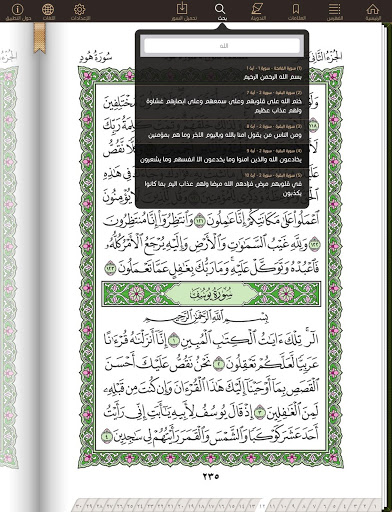 الرئيسية الفهرس العلامات التجزئة بحث تحميل السور الإعدادات اللغات حول التطبيق
الله
(1) سورة الفاتحة - آية 1
بسم الله الرحمن الرحيم
(2) سورة البقرة - آية 7
ختم الله على قلوبهم وعلى سمعهم وعلى ابصارهم غشاوة
ولهم عذاب عظيم
(3) سورة البقرة - آية 8
ومن الناس من يقول امنا بالله وباليوم الاخر وما هم بمؤمنين
(4) سورة البقرة - آية 9
يخادعون الله والذين امنوا وما يخدعون الا انفسهم وما يشعرون
(5) سورة البقرة - آية 10
في قلوبهم مرض فزادهم الله مرضا ولهم عذاب اليم بما كانوا
يكذبون
سُورَةُ هُود
ٱعْمَلُوا۟ عَلَىٰ مَكَانَتِكُمْ إِنَّا عَٰمِلُونَ ١٢١ وَٱنتَظِرُوٓا۟ إِنَّا مُنتَظِرُونَ
١٢٢ وَلِلَّهِ غَيْبُ ٱلسَّمَٰوَٰتِ وَٱلْأَرْضِ وَإِلَيْهِ يُرْجَعُ ٱلْأَمْرُ كُلُّهُۥ
فَٱعْبُدْهُ وَتَوَكَّلْ عَلَيْهِ وَمَا رَبُّكَ بِغَٰفِلٍ عَمَّا تَعْمَلُونَ ١٢٣
سُورَةُ يُوسُفَ
بِسْمِ ٱللَّهِ ٱلرَّحْمَٰنِ ٱلرَّحِيمِ
الٓر تِلْكَ ءَايَٰتُ ٱلْكِتَٰبِ ٱلْمُبِينِ ١ إِنَّآ أَنزَلْنَٰهُ قُرْءَٰنًا
عَرَبِيًّا لَّعَلَّكُمْ تَعْقِلُونَ ٢ نَحْنُ نَقُصُّ عَلَيْكَ أَحْسَنَ
ٱلْقَصَصِ بِمَآ أَوْحَيْنَآ إِلَيْكَ هَٰذَا ٱلْقُرْءَانَ وَإِن كُنتَ مِن قَبْلِهِۦ
لَمِنَ ٱلْغَٰفِلِينَ ٣ إِذْ قَالَ يُوسُفُ لِأَبِيهِ يَٰٓأَبَتِ إِنِّى رَأَيْتُ
أَحَدَ عَشَرَ كَوْكَبًا وَٱلشَّمْسَ وَٱلْقَمَرَ رَأَيْتُهُمْ لِى سَٰجِدِينَ ٤
٢٣٥